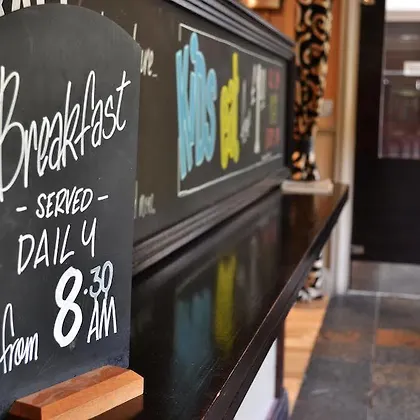 Breakfast
- SERVED -
DAILY
from 8.30 AM
KiDS eat